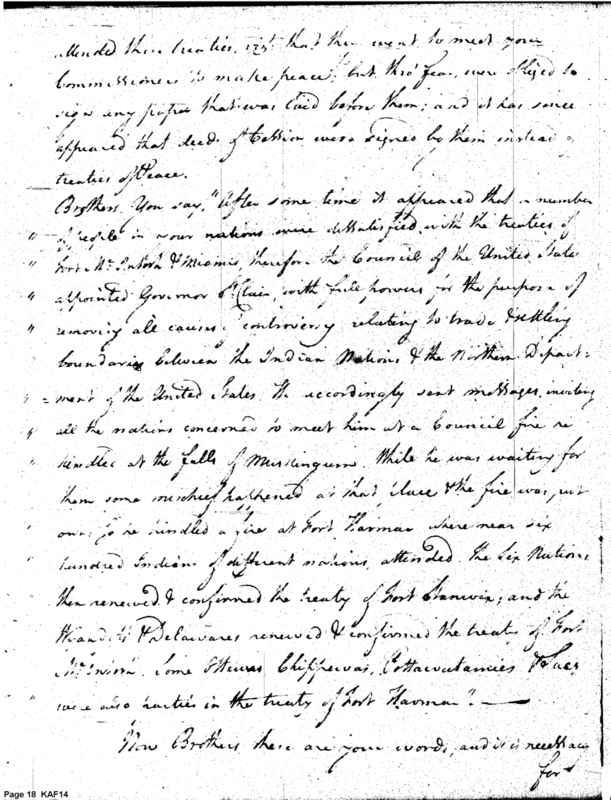 attended these treaties, vizt. that they went to meet your
Commissioners to make peace, but thro' fear, were obliged to
sign any paper that was laid before them; and it has since
appeared that deeds of Cession were signed by them instead of
treaties of Peace.
Brothers, You say, "After some time it appeared that a number
" of people in your nations were dissatisfied with the treaties of
" Fort McIntosh & Miamis, therefore the Council of the United States
" appointed Governor St. Clair, with full powers for the purpose of
" removing all causes of controversy relating to trade & settling
boundaries between the Indian Nations & the Northern Depart-
" = ment of the United States. He accordingly sent messages, inviting
" all the nations concerned to meet him at a Council fire he
" kindled at the falls of Muskingum. While he was waiting for
" them some mischief happened at that place & the fire was put
" out: so he kindled a fire at Fort Harmar where near six
" hundred Indians of different nations, attended. The Six Nations
then renewed & confirmed the treaty of Fort Stanwix; and the
Wyandots & Delawares renewed & confirmed the treaty of Fort
McIntosh. Some Ottawas Chippewas, Pottawatamies & Sacs
" were also parties in the treaty of Fort Harmar". —
Now Brothers, these are your words, and it is necessary
for
Page 18 KAF14